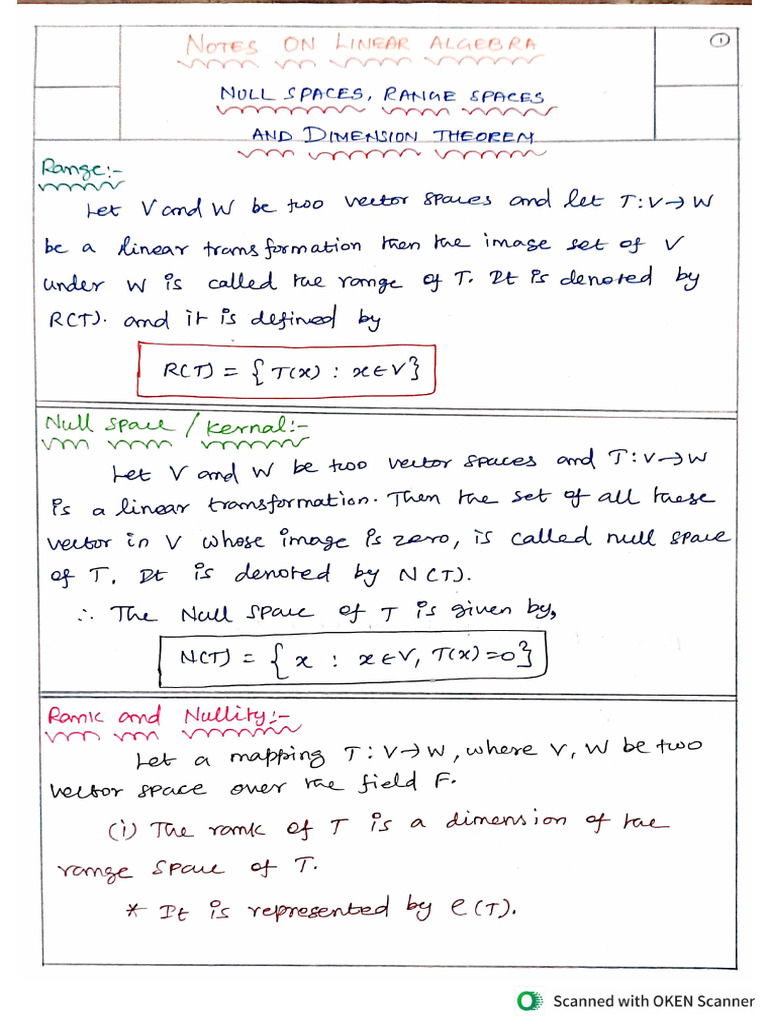 NOTES ON LINEAR ALGEBRA
1
NULL SPACES, RANGE SPACES
AND DIMENSION THEOREM
Range:-
Let V and W be two vector spaces and let T:V→W
be a linear transformation then the image set of V
under W is called the range of T. It is denoted by
R(T). and it is defined by
R(T) = { T(x) : x∈V}
Null space / Kernal:-
Let V and W be two vector spaces and T:V→W
is a linear transformation. Then the set of all these
vector in V whose image is zero, is called null space
of T. It is denoted by N(T).
∴ The Null space of T is given by,
N(T) = { x : x∈V, T(x)=0}
Rank and Nullity:-
Let a mapping T:V→W, where V, W be two
vector space over the field F.
(i) The rank of T is a dimension of the
range space of T.
* It is represented by ρ(T).
Scanned with OKEN Scanner